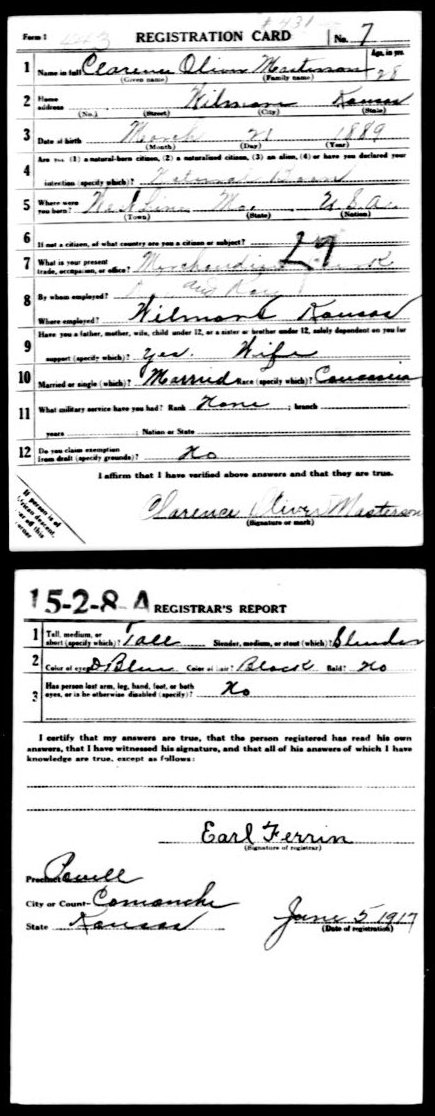 Form 1 REGISTRATION CARD No. 7
Age, in yrs.
1 Name in full Clarence Oliver Masterson 28
(Given name) (Family name)
2 Home address Wilmore Kansas
(No.) (Street) (City) (State)
3 Date of birth March 21 1889
(Month) (Day) (Year)
Are you (1) a natural-born citizen, (2) a naturalized citizen, (3) an alien, (4) or have you declared your
4 intention (specify which)? Natural Born
5 Where were you born? Mo. U.S.A.
(Town) (State) (Nation)
6 If not a citizen, of what country are you a citizen or subject?
29
7 What is your present trade, occupation, or office?
8 By whom employed?
Where employed? Wilmore Kansas
Have you a father, mother, wife, child under 12, or a sister or brother under 12, solely dependent on you for
9 support (specify which)? Yes. Wife
10 Married or single (which)? Married Race (specify which)? Caucasian
11 What military service have you had? Rank None ; branch
years ; Nation or State
12 Do you claim exemption from draft (specify grounds)? No
I affirm that I have verified above answers and that they are true.
Clarence Oliver Masterson
(Signature or mark)
If person is of
African descent,
corner
15-2-8-A REGISTRAR'S REPORT
1 Tall, medium, or short (specify which)? Tall Slender, medium, or stout (which)? Slender
2 Color of eyes? D Blue Color of hair? Black Bald? No
3 Has person lost arm, leg, hand, foot, or both eyes, or is he otherwise disabled (specify)? No
I certify that my answers are true, that the person registered has read his own
answers, that I have witnessed his signature, and that all of his answers of which I have
knowledge are true, except as follows:
Earl Ferrin
(Signature of registrar)
Precinct Powell
City or County Comanche
State Kansas June 5 1917
(Date of registration)